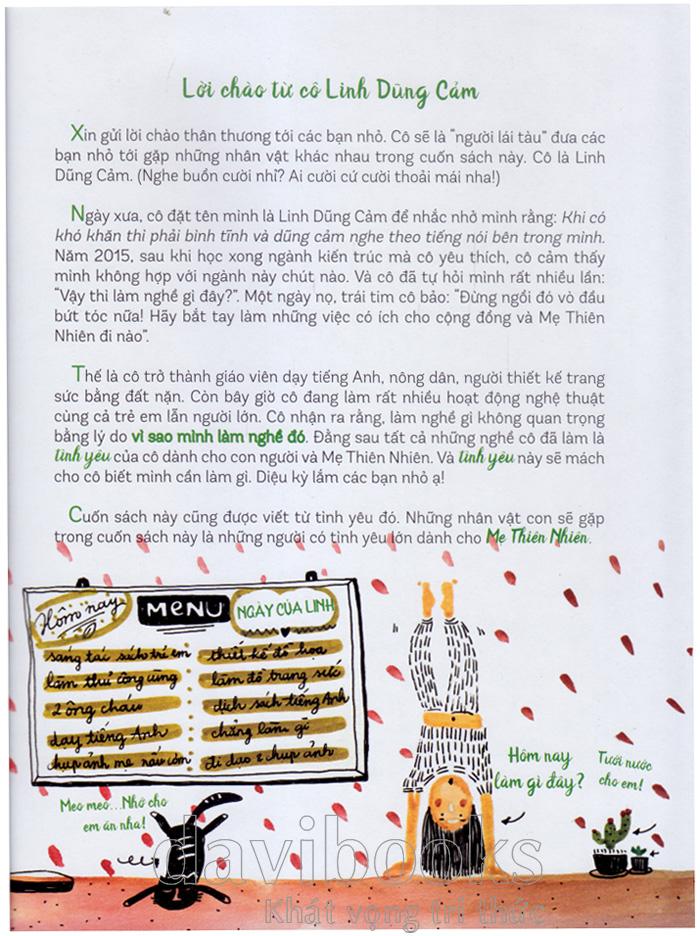 Lời chào từ cô Linh Dũng Cảm
Xin gửi lời chào thân thương tới các bạn nhỏ. Cô sẽ là “người lái tàu” đưa các
bạn nhỏ tới gặp những nhân vật khác nhau trong cuốn sách này. Cô là Linh
Dũng Cảm. (Nghe buồn cười nhỉ? Ai cười cứ cười thoải mái nha!)
Ngày xưa, cô đặt tên mình là Linh Dũng Cảm để nhắc nhở mình rằng: Khi có
khó khăn thì phải bình tĩnh và dũng cảm nghe theo tiếng nói bên trong mình.
Năm 2015, sau khi học xong ngành kiến trúc mà cô yêu thích, cô cảm thấy
mình không hợp với ngành này chút nào. Và cô đã tự hỏi mình rất nhiều lần:
“Vậy thì làm nghề gì đây?”. Một ngày nọ, trái tim cô bảo: “Đừng ngồi đó vò đầu
bứt tóc nữa! Hãy bắt tay làm những việc có ích cho cộng đồng và Mẹ Thiên
Nhiên đi nào”.
Thế là cô trở thành giáo viên dạy tiếng Anh, nông dân, người thiết kế trang
sức bằng đất nặn. Còn bây giờ cô đang làm rất nhiều hoạt động nghệ thuật
cùng cả trẻ em lẫn người lớn. Cô nhận ra rằng, làm nghề gì không quan trọng
bằng lý do vì sao mình làm nghề đó. Đằng sau tất cả những nghề cô đã làm là
tình yêu của cô dành cho con người và Mẹ Thiên Nhiên. Và tình yêu này sẽ mách
cho cô biết mình cần làm gì. Diệu kỳ lắm các bạn nhỏ ạ!
Cuốn sách này cũng được viết từ tình yêu đó. Những nhân vật con sẽ gặp
trong cuốn sách này là những người có tình yêu lớn dành cho Mẹ Thiên Nhiên.
Hôm nay MENU NGÀY CỦA LINH
sáng tác sách trẻ em
làm thủ công cùng
2 ông cháu
dạy tiếng Anh
chụp ảnh mẹ nấu cơm
thiết kế đồ họa
làm đồ trang sức
dịch sách tiếng Anh
chẳng làm gì
đi dạo & chụp ảnh
Meo meo...Nhớ cho
em ăn nha!
Hôm nay
làm gì đây?
Tưới nước
cho em!
davibooks
Khát vọng tri thức